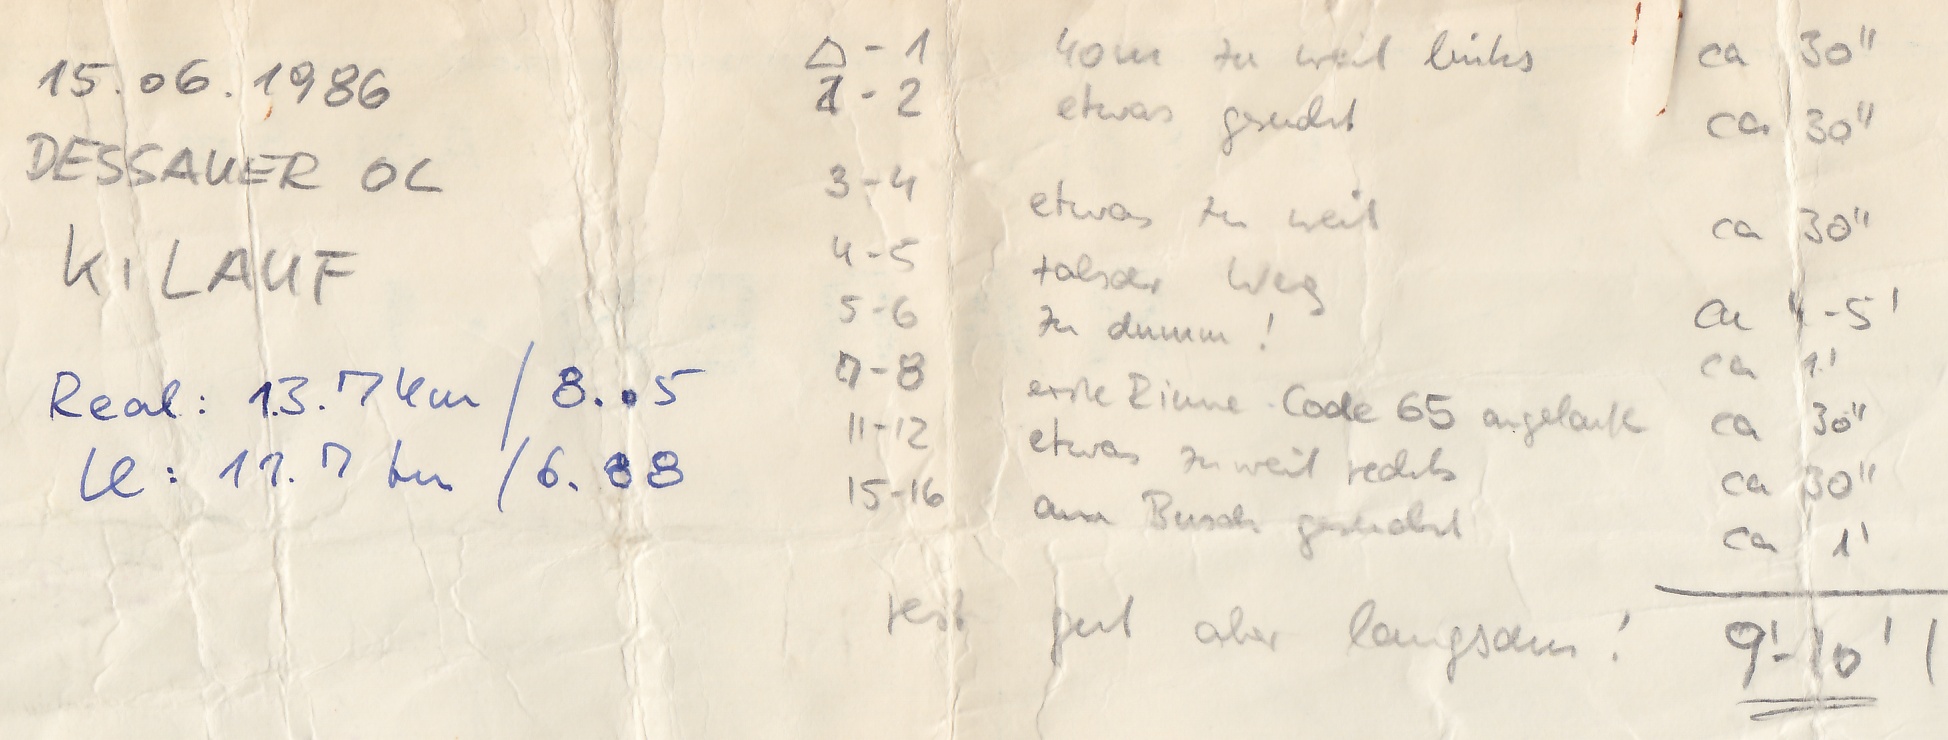 15.06.1986
DESSAUER OL
KI LAUF
Real: 13.7 km / 8.05
LL: 11.7 km / 6.88
△-1 40m zu weit links ca 30"
1-2 etwas gesucht ca 30"
3-4 etwas zu weit ca 30"
4-5 falscher Weg ca 4-5'
5-6 zu dumm! ca 1'
7-8 erste Rinne Code 65 angelaufen ca 30"
11-12 etwas zu weit rechts ca 30"
15-16 am Busch gesucht ca 1'
rest gut aber langsam! 9'-10'!